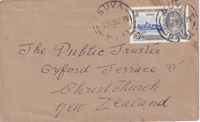 SUVA
The Public Trustee
Oxford Terrace
Christchurch
New Zealand